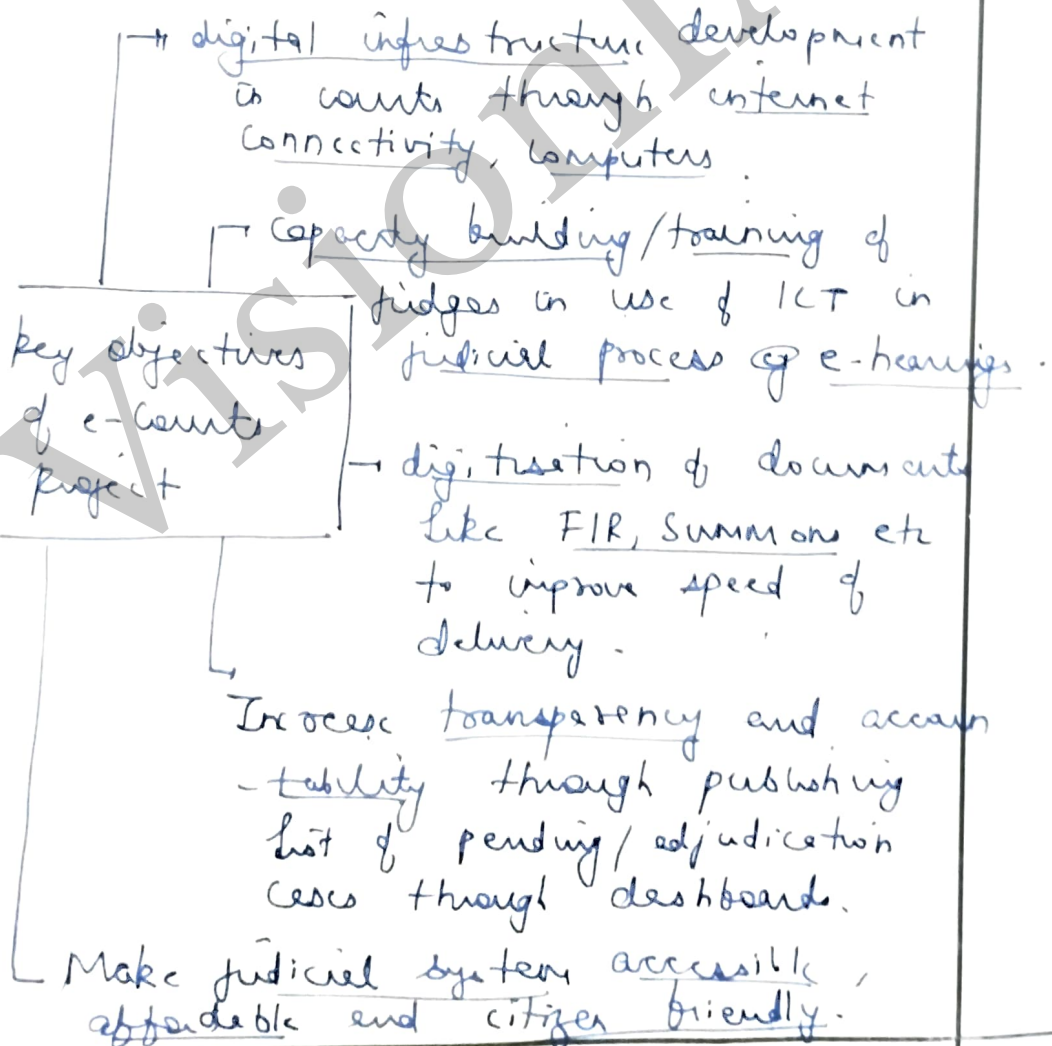 digital infrastructure development
in courts through internet
connectivity, computers.
Capacity building/training of
judges in use of ICT in
judicial process eg e-hearings.
key objectives
of e-Courts
Project
digitisation of documents
like FIR, Summons etc
to improve speed of
delivery.
Increase transparency and accoun
-tability through publishing
list of pending/adjudication
cases through dashboard.
Make judicial system accessible,
affordable and citizen friendly.
Vision